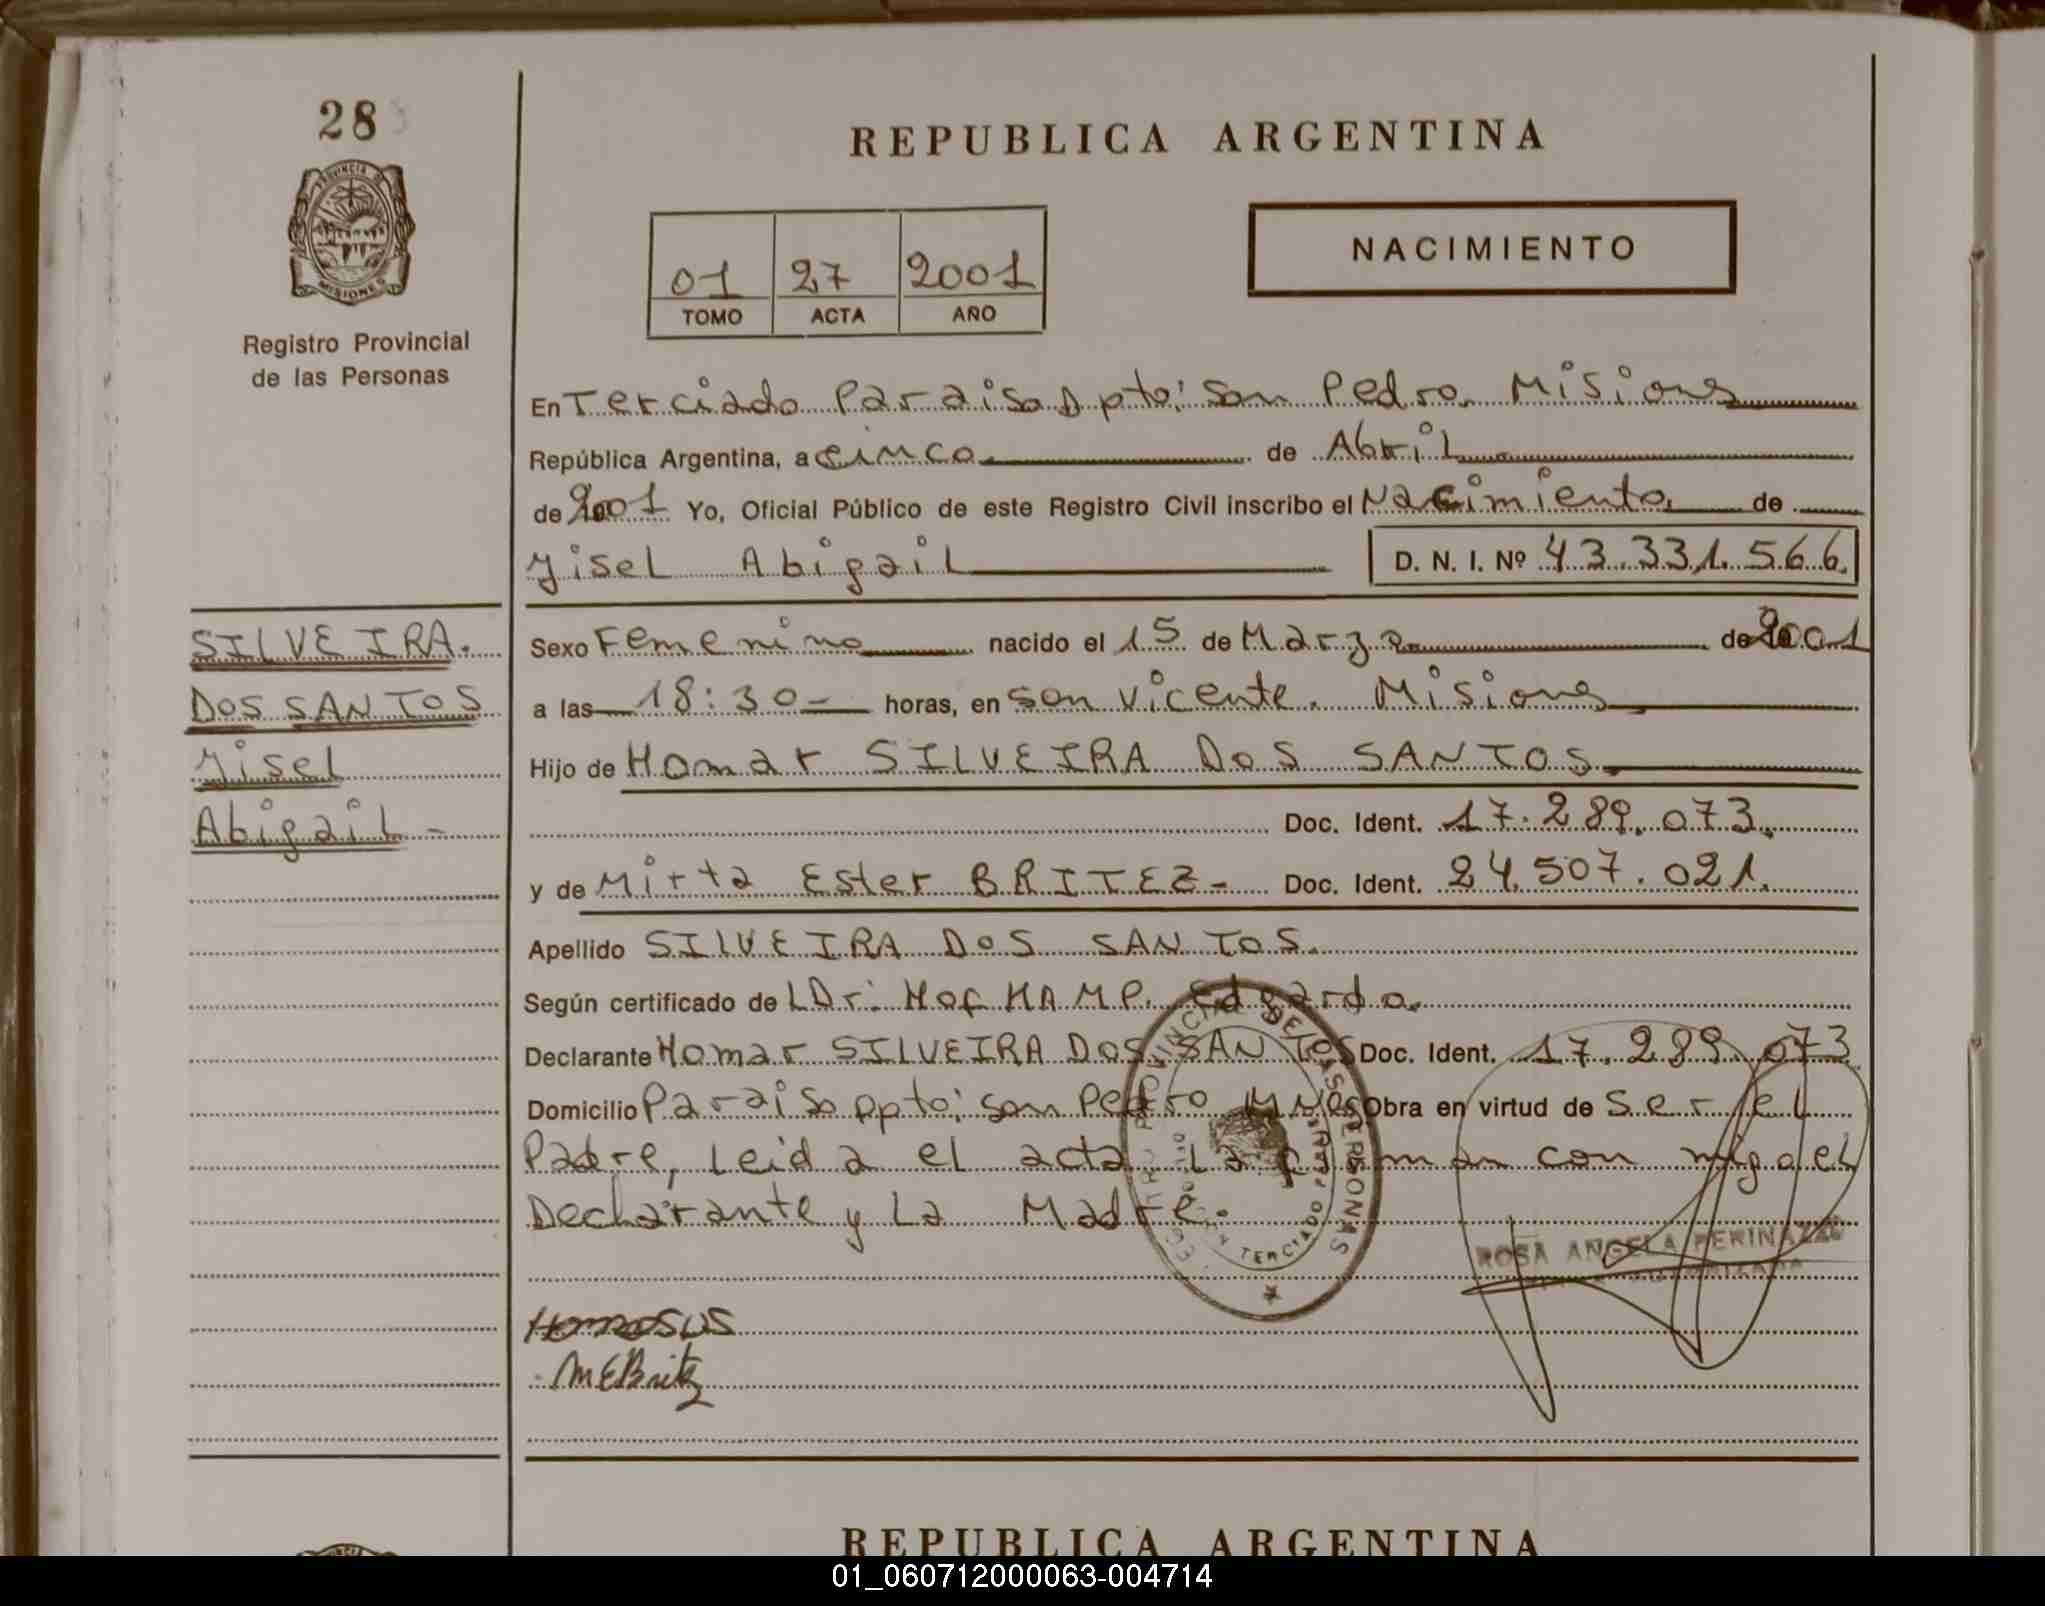 28
REPUBLICA ARGENTINA
PROVINCIA DE
MISIONES
Registro Provincial
de las Personas
NACIMIENTO
01 27 2001
TOMO ACTA AÑO
En Terciado Paraiso Dpto: San Pedro. Misiones
República Argentina, a cinco. de Abril
de 2001 Yo, Oficial Público de este Registro Civil inscribo el Nacimiento de
Yisel Abigail D. N. I. Nº 43.331.566.
SILVEIRA.
DOS SANTOS
Yisel
Abigail -
Sexo Femenino nacido el 15 de Marzo de 2001
a las 18:30 - horas, en San Vicente. Misiones
Hijo de Homar SILVEIRA DOS SANTOS.
Doc. Ident. 17.289.073.
y de Mirta Ester BRITEZ - Doc. Ident. 24.507.021.
Apellido SILVEIRA DOS SANTOS.
Según certificado de LDr: Hof HAMP. Edgardo.
Declarante Homar SILVEIRA DOS SANTOS Doc. Ident. 17.289.073
Domicilio Paraiso Dpto: San Pedro Mnes Obra en virtud de ser el
Padre, Leida el acta La firman con migo el
Declarante y La Madre.
PROVINCIAL DE LAS PERSONAS
TERCIADO
ROSA ANGELA PERINAZZO
MEBritz
REPUBLICA ARGENTINA
01_060712000063-004714